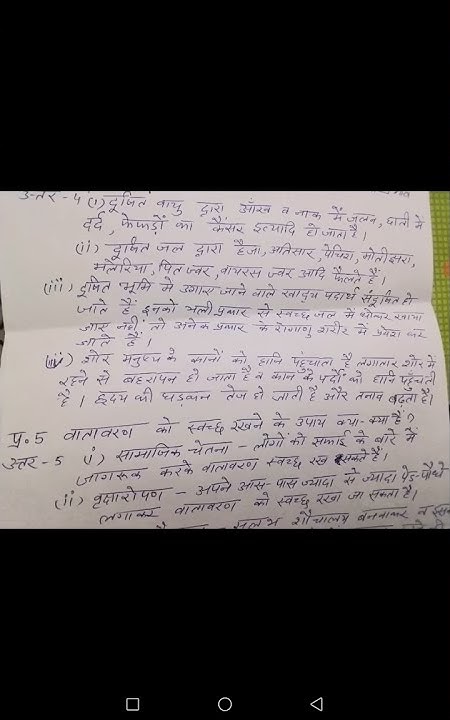 उत्तर-4 (i) दूषित वायु द्वारा आँख व नाक में जलन, छाती में
दर्द, फेफड़ों का कैंसर इत्यादि हो जाता है।
(ii) दूषित जल द्वारा हैजा, अतिसार, पेचिश, मोतीझरा,
मलेरिया, पित ज्वर, वायरस ज्वर आदि फैलते हैं।
(iii) दूषित भूमि में उगाए जाने वाले खाद्य पदार्थ संदूषित हो
जाते हैं इनको भली प्रकार से स्वच्छ जल में धोकर खाया
जाए नहीं तो अनेक प्रकार के रोगाणु शरीर में प्रवेश कर
जाते हैं।
(iv) शोर मनुष्य के कानों को हानि पहुंचाता है लगातार शोर में
रहने से बहरापन हो जाता है व कान के पर्दों को हानि पहुँचती
है। हृदय की धड़कन तेज हो जाती है और तनाव बढ़ता है।
प्र.5 वातावरण को स्वच्छ रखने के उपाय क्या-क्या हैं?
उत्तर-5 (i) सामाजिक चेतना - लोगों को सफाई के बारे में
जागरूक करके वातावरण स्वच्छ रख सकते हैं।
(ii) वृक्षारोपण - अपने आस-पास ज्यादा से ज्यादा पेड़-पौधे
लगाकर वातावरण को स्वच्छ रखा जा सकता है।
सुलभ शौचालय बनवाकर व